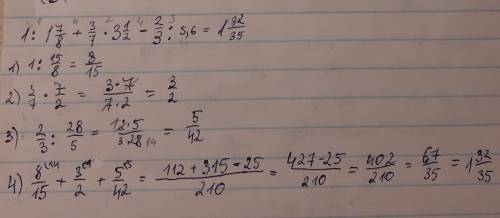 1 : 1 7/8 + 3/7 · 3 1/2 − 2/3 : 5,6 = 1 32/35
1) 1 : 15/8 = 8/15
2) 3/7 · 7/2 = 3·7/7·2 = 3/2
3) 2/3 : 28/5 = 12·5/3·28 14 = 5/42
4) 8/15 + 3/2 + 5/42 = 112 + 315 − 25/210 = 427−25/210 = 402/210 = 67/35 = 1 32/35